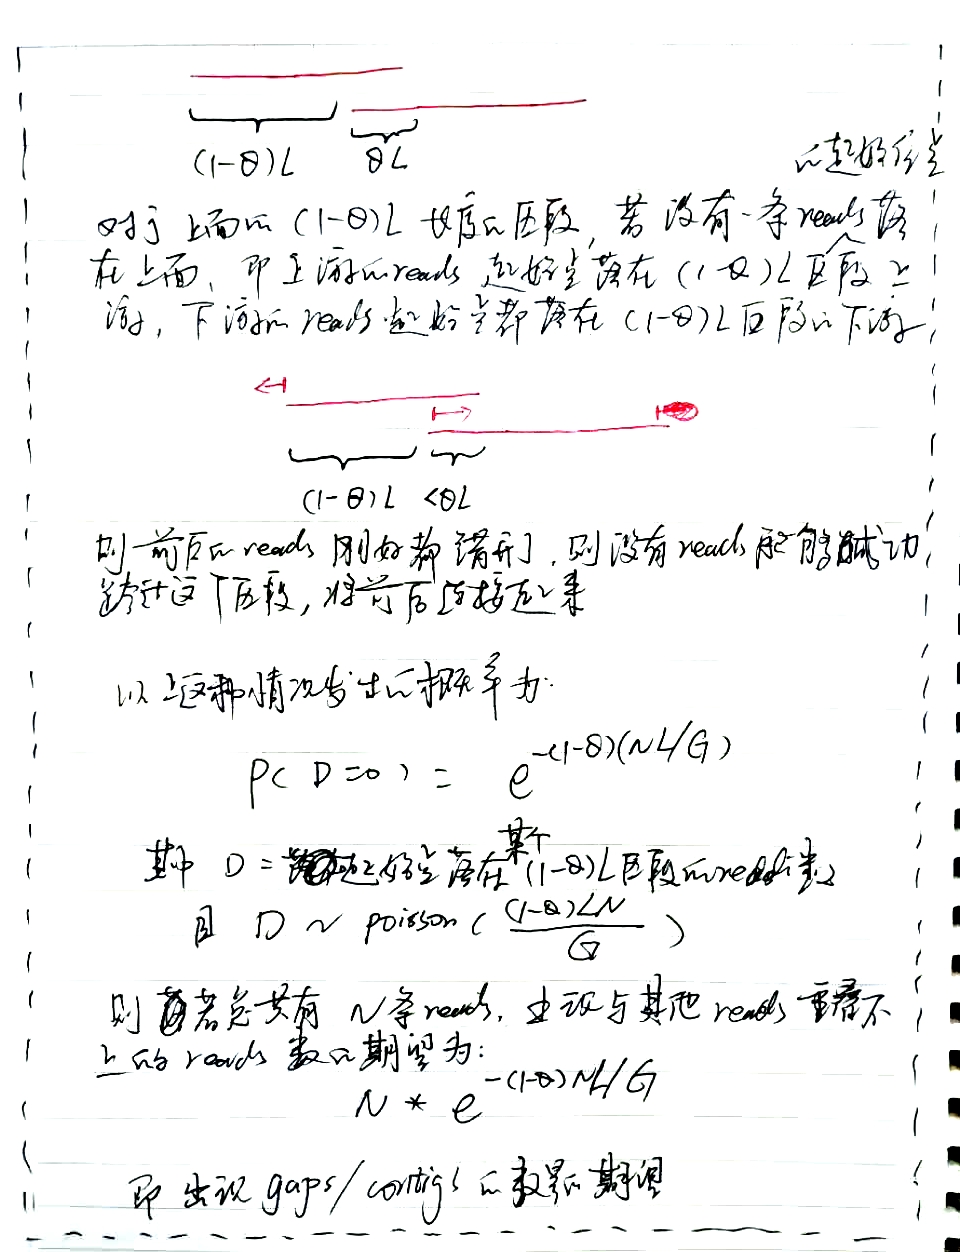 (1-θ)L θL
的起始位点
对于上面的 (1-θ)L 长度的区段, 若没有一条reads落
在上面, 即上游的reads 起始点落在 (1-θ)L区段上
游, 下游的reads起始点都落在 (1-θ)L区段的下游
(1-θ)L <θL
则前后的reads刚好都错开了, 则没有reads能够成功
跨过这个区段, 将前后连接起来
以上这种情况发生的概率为:
P( D=0 ) = e^{-(1-θ)(NL/G)}
某个
其中 D = 起始点落在 (1-θ)L区段的reads数
且 D ~ poisson ( (1-θ)LN / G )
则若总共有 N条reads, 出现与其他 reads 重叠不
上的 reads 数的期望为:
N * e^{-(1-θ)NL/G}
即出现 gaps/contigs 的数量的期望